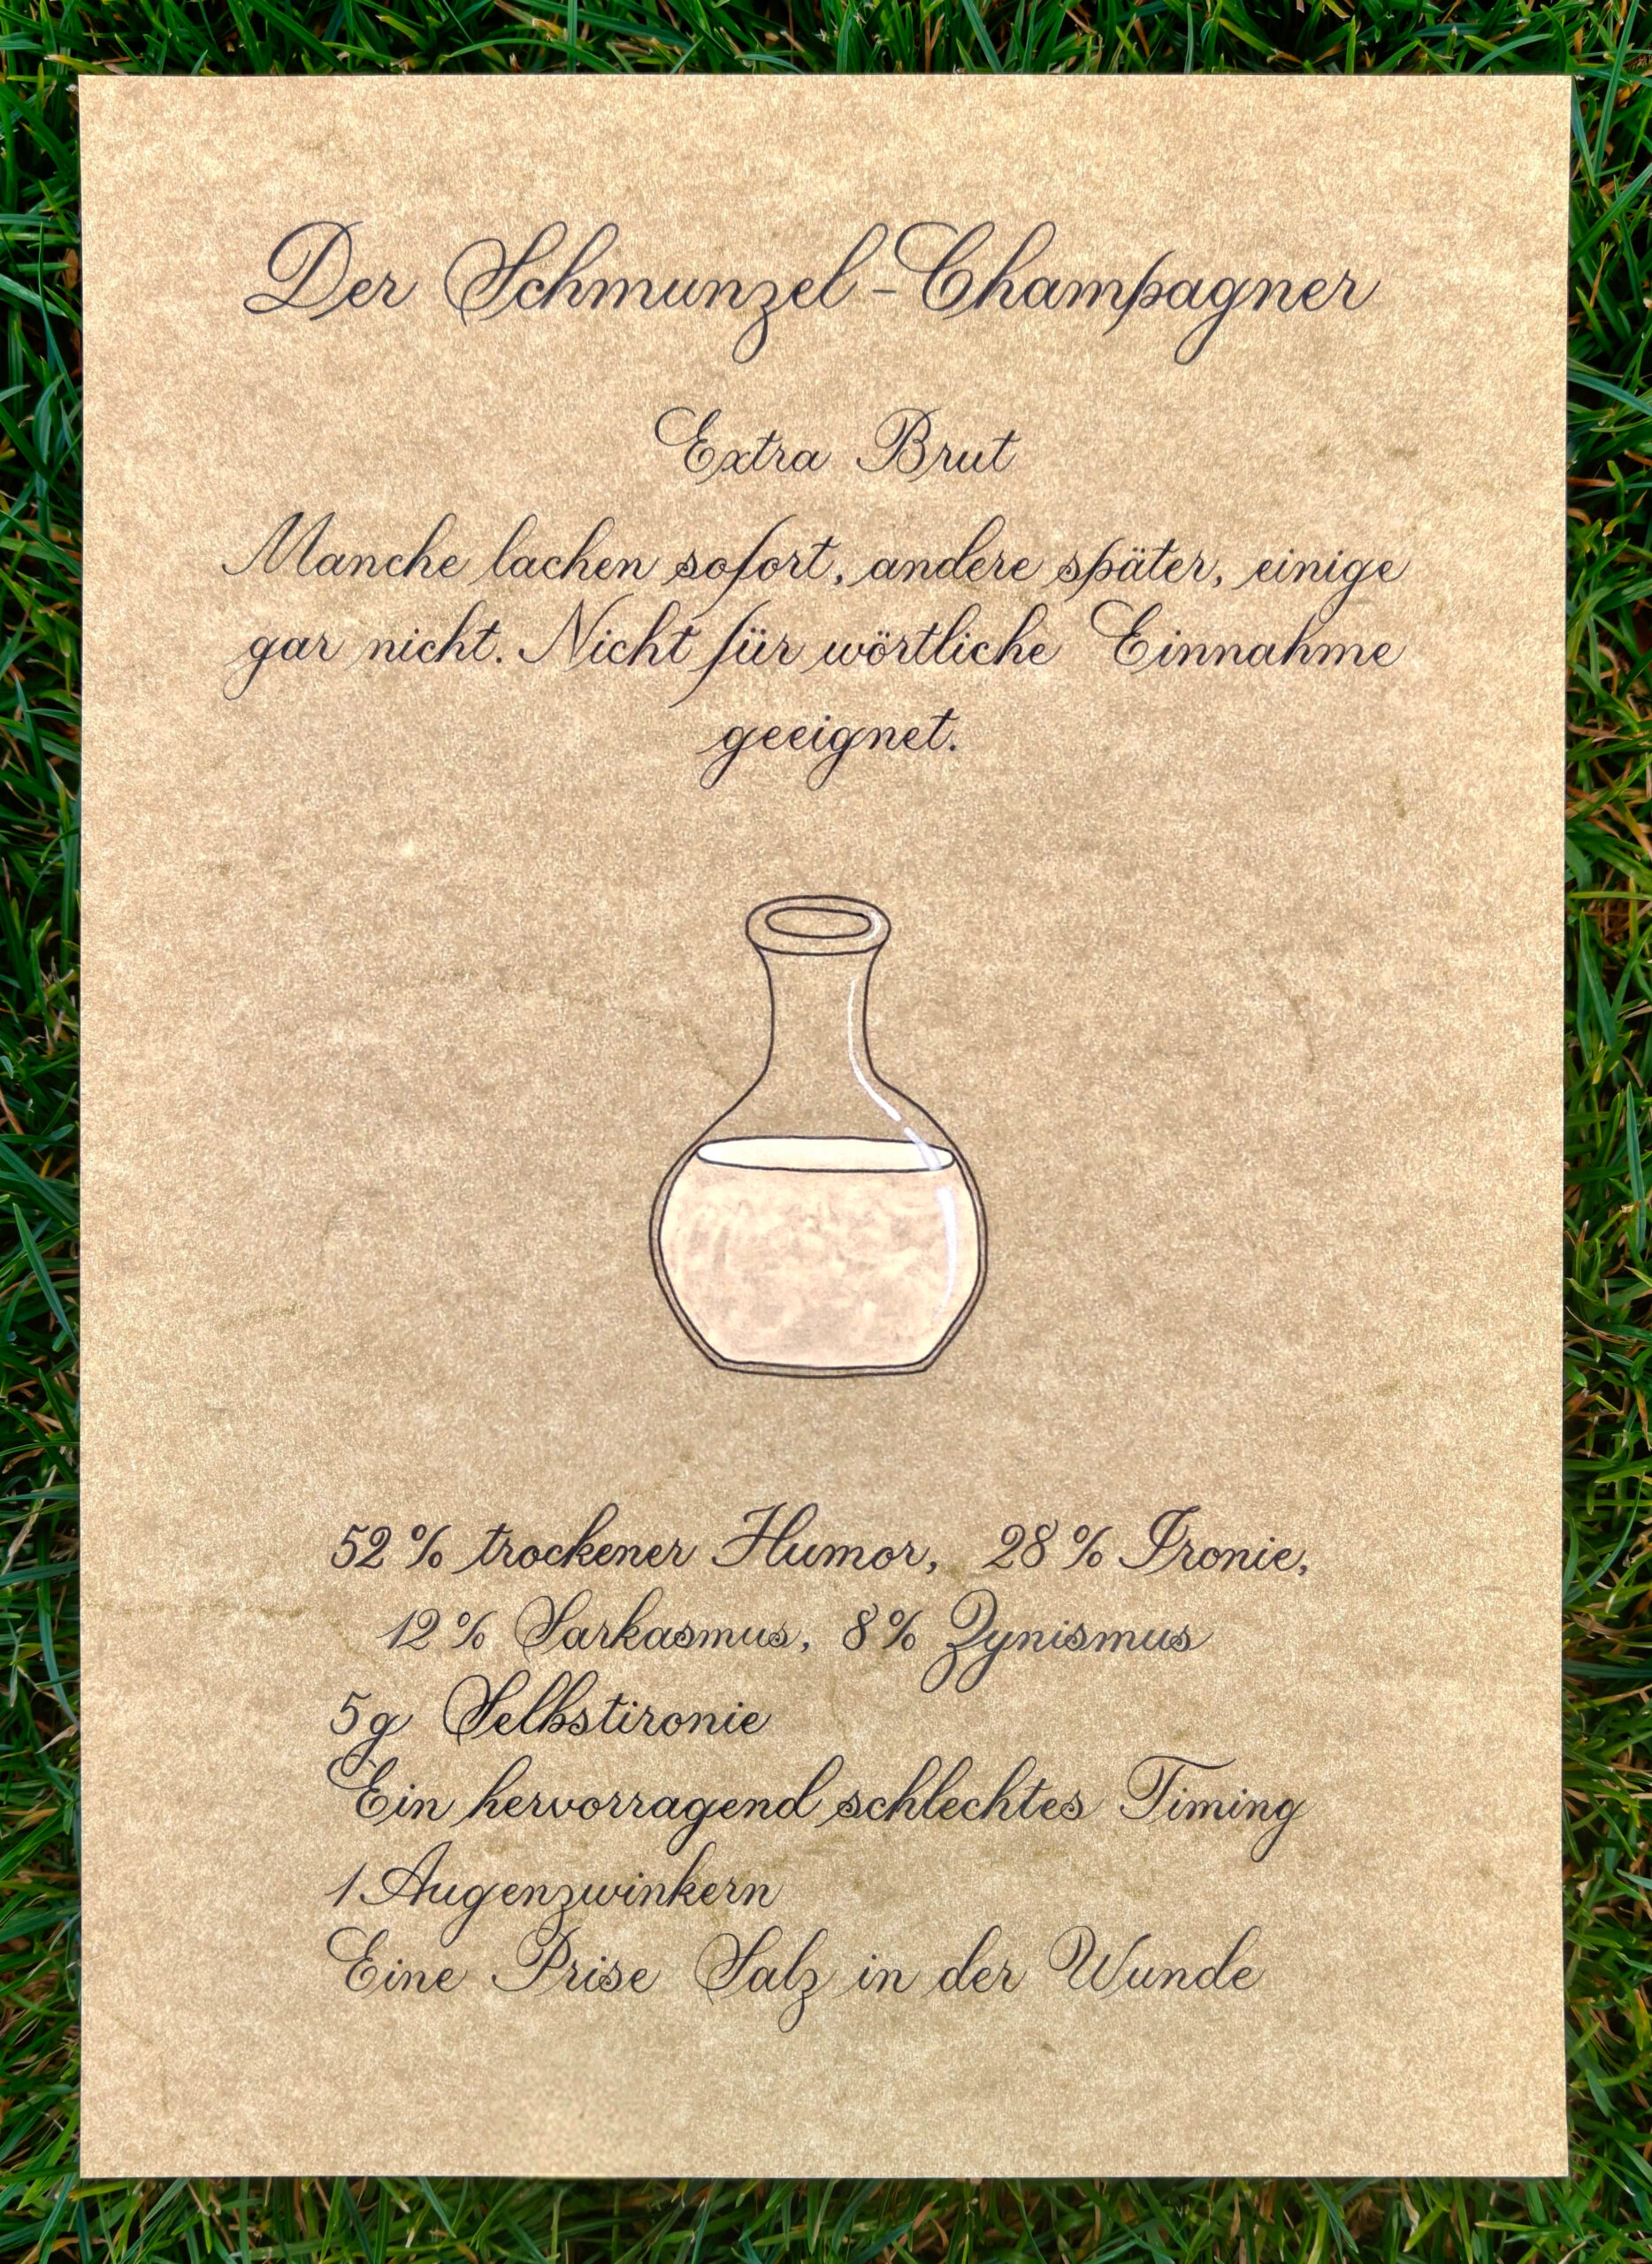 Der Schmunzel-Champagner
Extra Brut
Manche lachen sofort, andere später, einige
gar nicht. Nicht für wörtliche Einnahme
geeignet.
52 % trockener Humor, 28 % Ironie,
12 % Sarkasmus, 8 % Zynismus
5g Selbstironie
Ein hervorragend schlechtes Timing
1 Augenzwinkern
Eine Prise Salz in der Wunde